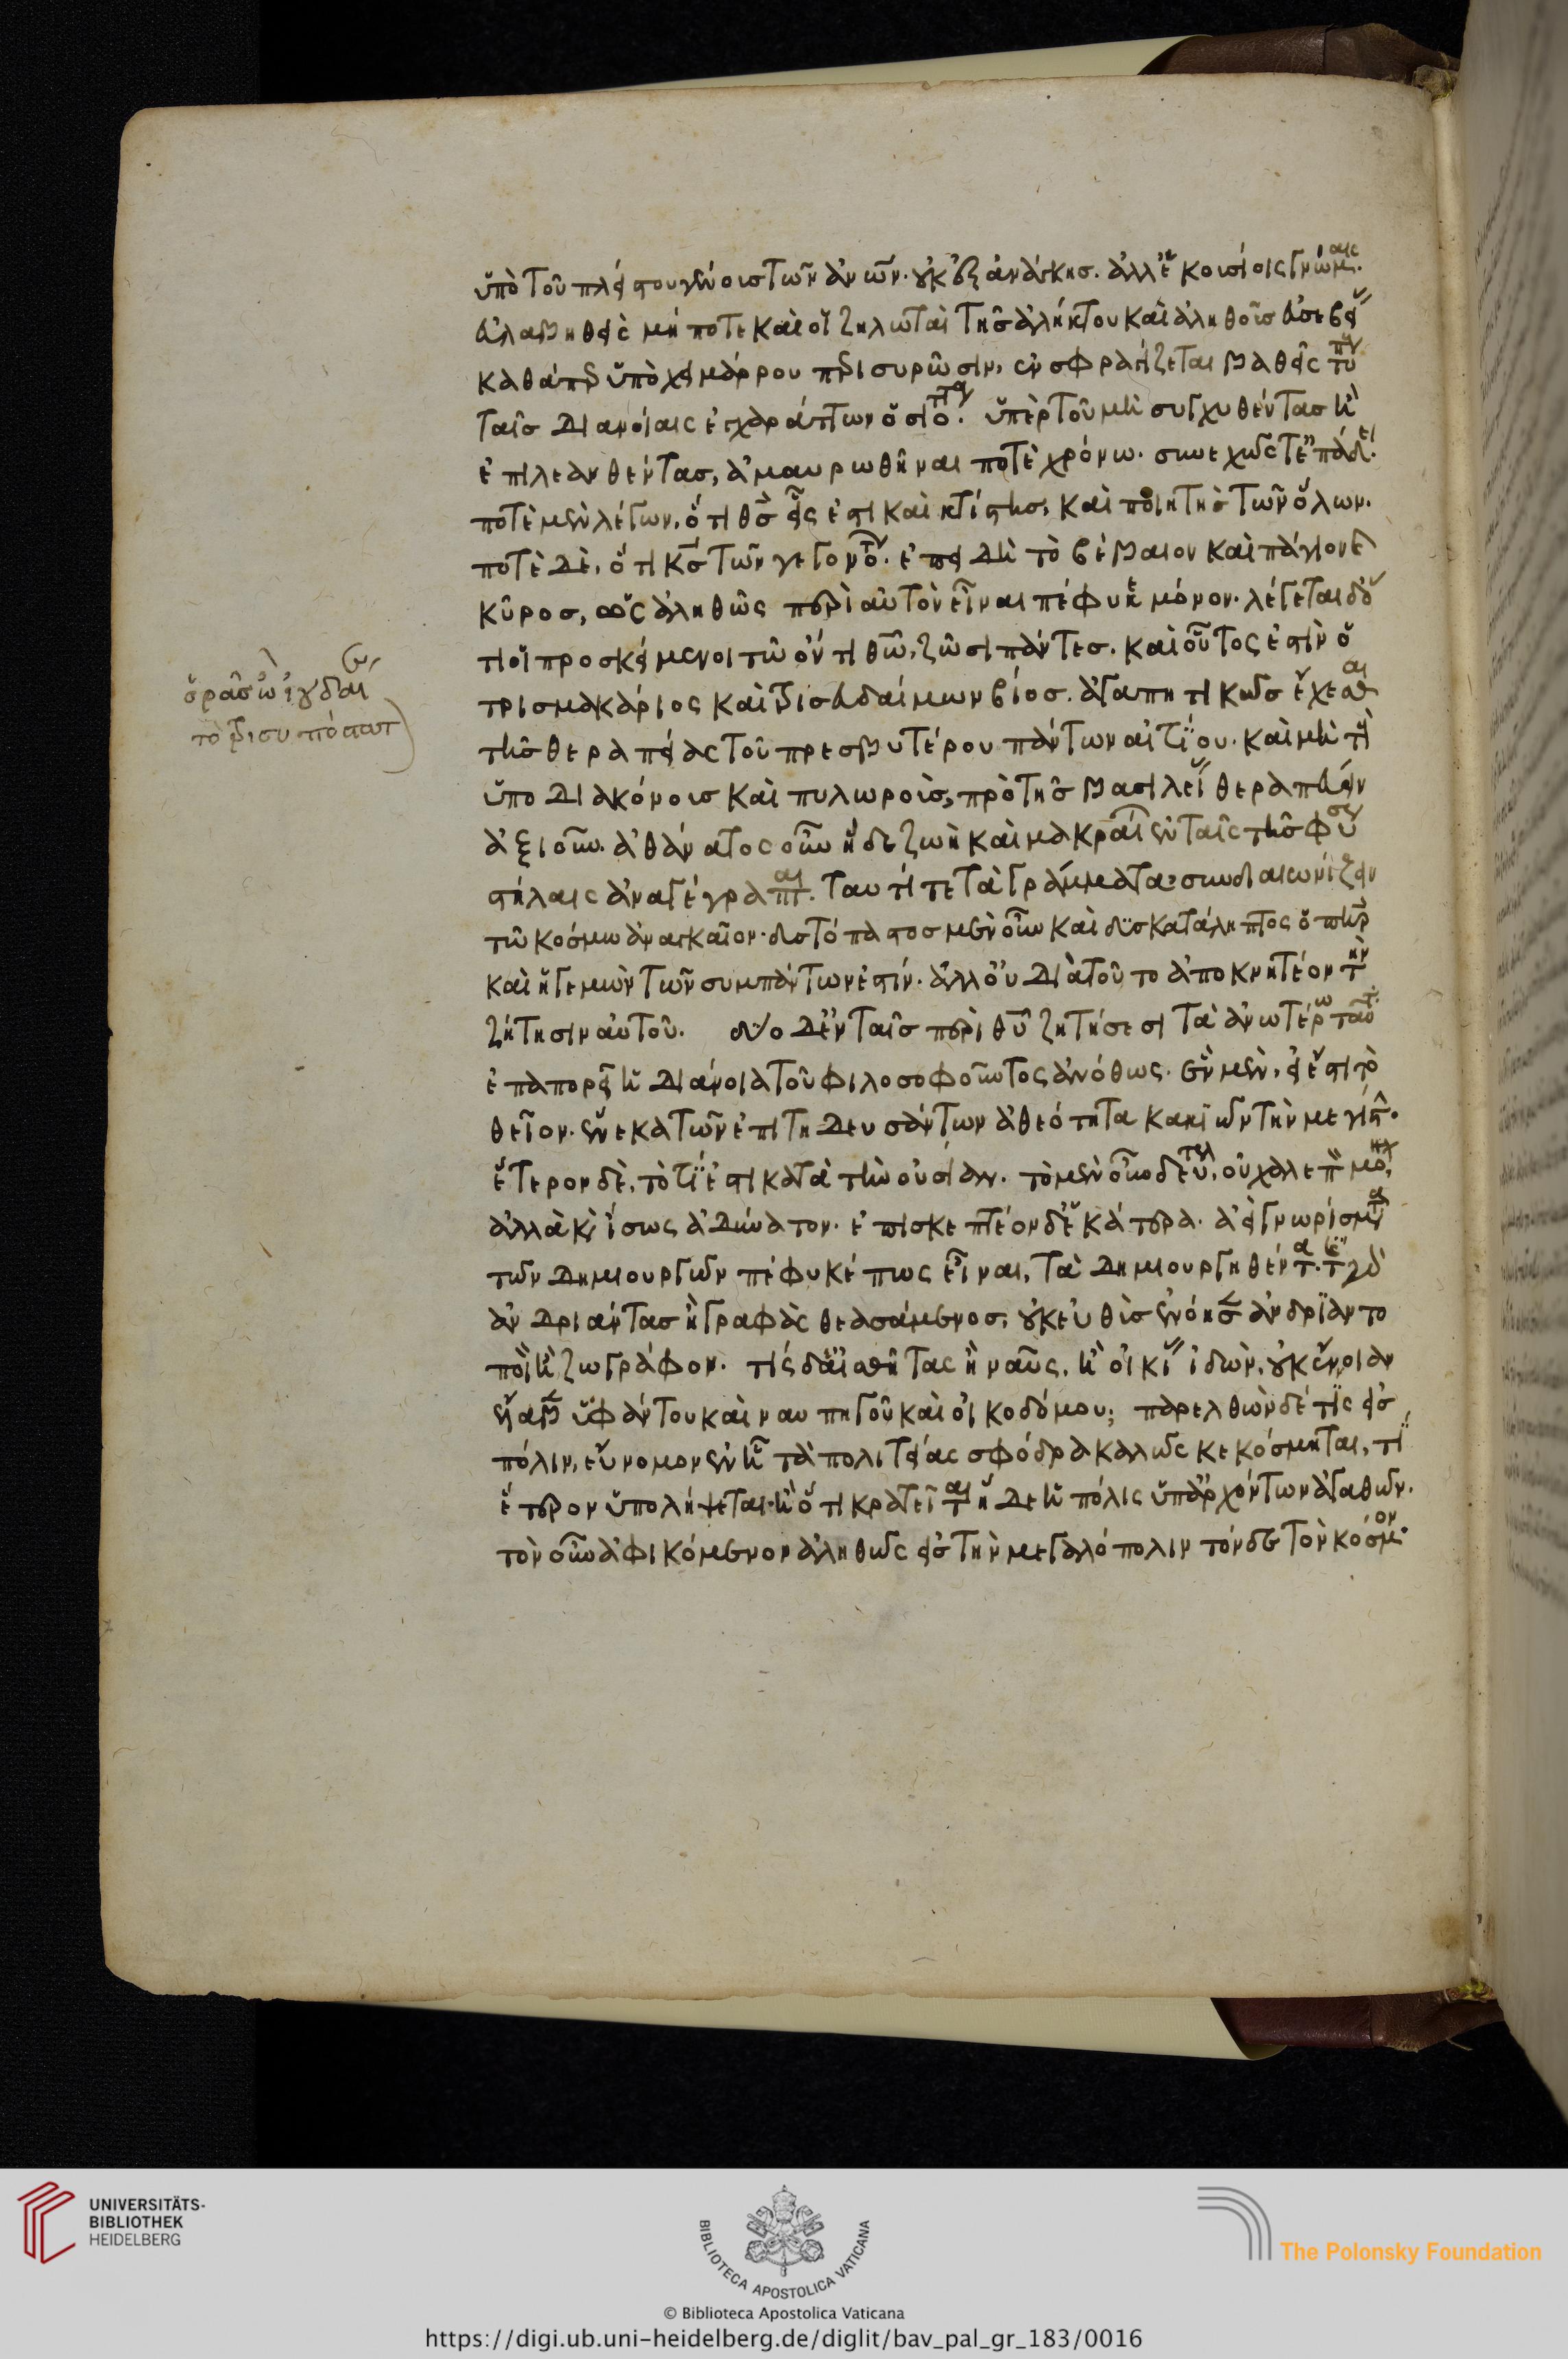 ὑπὸ τοῦ πλείστου γένους τῶν ἀνων. οὐκ ἐξ ἀνάγκης. ἀλλ' ἑκουσίοις γνώμαις.
εὐλαβηθεὶς μήποτε καὶ οἱ ζηλωταὶ τῆς ἀλήκτου καὶ ἀληθοῦς εὐσεβείας
καθάπερ ὑπὸ χειμάρρου περισυρῶσιν, ἐνσφραγίζεται βαθεῖς τύπους
ταῖς διανοίαις ἐγχαράττων ὁσιότητος. ὑπὲρ τοῦ μὴ συγχυθέντας ἢ
ἐπιλεανθέντας, ἀμαυρωθῆναι ποτὲ χρόνω. συνεχῶς τε ἐπάδει.
ποτὲ μὲν λέγων, ὅτι θς εἷς ἐστι καὶ κτίστης, καὶ ποιητὴς τῶν ὅλων.
ποτὲ δὲ, ὅτι κς τῶν γεγονότων. ἐπειδὴ τὸ βέβαιον καὶ πάγιον καὶ
κῦρος, ὡς ἀληθῶς περὶ αὐτὸν εἶναι πέφυκε μόνον. λέγεται δὲ ὅ
τι οἱ προσκείμενοι τῶ ὄντι θῶ, ζῶσι πάντες. καὶ οὗτος ἐστὶν ὁ
τρισμακάριος καὶ τρισευδαίμων βίος. ἀγαπητικῶς ἔχεσθαι
τῆς θεραπείας τοῦ πρεσβυτέρου πάντων αἰτίου. καὶ μὴ τὴν
ὑποδιακόνοις καὶ πυλωροῖς, πρὸ τῆς βασιλείου θεραπεύειν
ἀξιοῦν. ἀθάνατος οὖν ἥδε ζωὴ καὶ μακραίων ἐν ταῖς τῆς φύσεως
στήλαις ἀναγέγραπται. ταυτί τε τὰ γράμματα συνδιαιωνίζειν
τῶ κόσμω ἀναγκαῖον. δυστόπαστος μὲν οὖν καὶ δυσκατάληπτος ὁ πὴρ
καὶ ἡγεμὼν τῶν συμπάντων ἐστίν. ἀλλ' οὐ διὰ τοῦτο ἀποκνητέον τὴν
ζήτησιν αὐτοῦ. δύο δ' ἐν ταῖς περὶ θυ ζητήσεσι τὰ ἀνωτέρω ταῦτ
ἐπαπορεῖ ἡ διάνοια τοῦ φιλοσοφοῦντος ἀνόθως. ἓν μὲν, εἰ ἔστι τὸ
θεῖον. ἕνεκα τῶν ἐπιτηδευσάντων ἀθεότητα κακιῶν τὴν μεγίστην.
ἕτερον δὲ, τὸ τί ἐστι κατὰ τὴν οὐσίαν. τὸ μὲν οὖν δεύτερον, οὐ χαλεπὸν μόνον,
ἀλλὰ καὶ ἴσως ἀδύνατον. ἐπισκεπτέον δ' ἑκάτερα. ἀεὶ γνωρίσματα
τῶν δημιουργῶν πέφυκέ πως εἶναι, τὰ δημιουργηθέντα. τίς γὰρ
ἀνδριάντας ἢ γραφὰς θεασάμενος, οὐκ εὐθὺς ἐνόησεν ἀνδριαντο
ποιὸν ἢ ζωγράφον. τίς δὲ ἐσθῆτας ἢ ναῦς, ἢ οἰκίας ἰδὼν, οὐκ ἔννοιαν
ἔλαβεν ὑφάντου καὶ ναυπηγοῦ καὶ οἰκοδόμου; παρελθὼν δέ τις εἰς
πόλιν, εὔνομον ἐν ἧ τὰ πολιτείας σφόδρα καλῶς κεκόσμηται, τί
ἕτερον ὑπολήψεται ἢ ὅτι κρατεῖται ἥδε ἡ πόλις ὑπ' ἀρχόντων ἀγαθῶν.
τὸν οὖν ἀφικόμενον ἀληθῶς εἰς τὴν μεγαλόπολιν τόνδε τὸν κόσμον
ὦ ἰουδαῖ
τὸ τρισυπόστατ
UNIVERSITÄTS-
BIBLIOTHEK
HEIDELBERG
BIBLIOTECA APOSTOLICA VATICANA
© Biblioteca Apostolica Vaticana
The Polonsky Foundation
https://digi.ub.uni-heidelberg.de/diglit/bav_pal_gr_183/0016